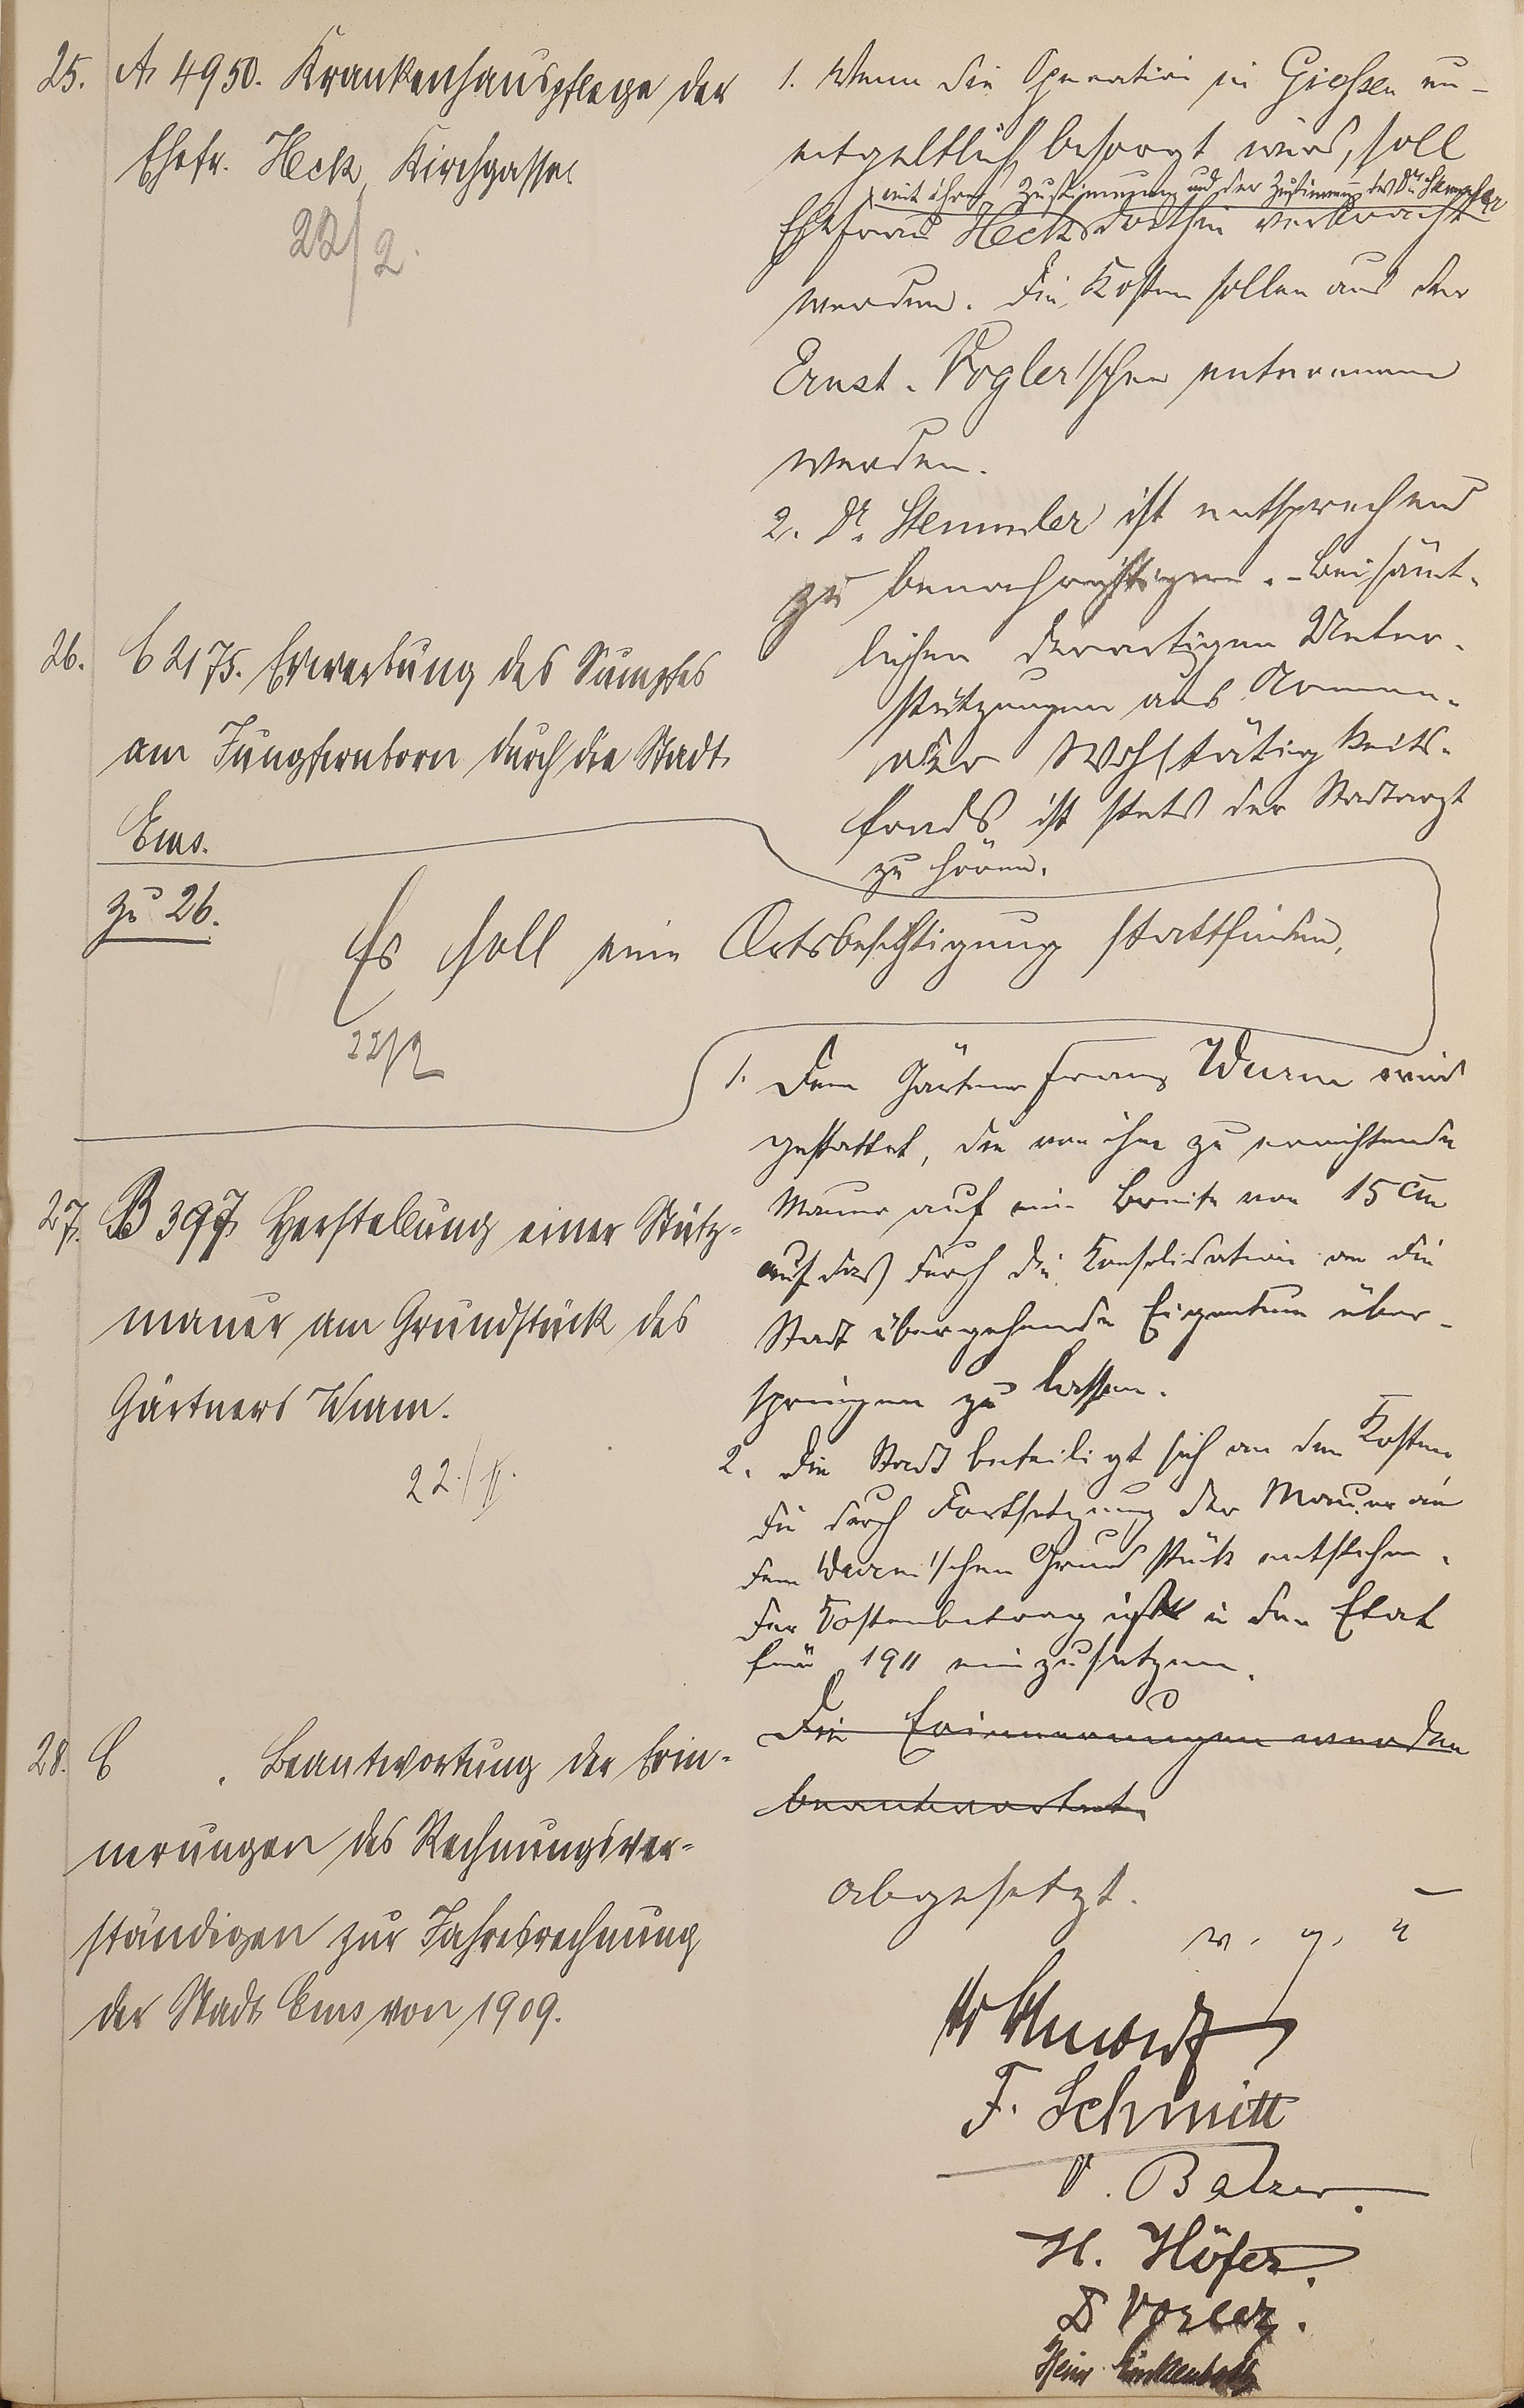 25. A 4950. Krankenhauspflege der
Ehefr. Heck, Kirchgasse
22/2.
1. Wenn die Operation in Giessen un-
entgeltlich besorgt wird, soll
mit ihrer Zustimmung und der Zustimmung des Dr. Stemmler
Ehefrau Heck dorthin verbracht
werden. Die Kosten sollen aus der
Ernst-Vogler'schen entnommen
werden.
2. Dr. Stemmler ist entsprechend
zu benachrichtigen. - Bei sämt-
lichen derartigen Unter-
stützungen aus Armen-
oder Wohltätigkeits-
fonds ist stets der Stadtarzt
zu hören.
26. C 2175. Erwerbung des Sumpfes
am Jungfernborn durch die Stadt
Ems.
zu 26.
Es soll eine Ortsbesichtigung stattfinden.
22/2
27. B 397 Herstellung einer Stütz-
mauer am Grundstück des
Gärtners Wurm.
22./II.
1. Dem Gärtner Franz Wurm wird
gestattet, die von ihm zu errichtende
Mauer auf eine Breite von 15 cm
auf das durch die Konsolidation an die
Stadt übergehende Eigentum über-
springen zu lassen.
2. Die Stadt beteiligt sich an den Kosten
die durch Fortsetzung der Mauer an
dem Wurm'schen Grundstück entstehen.
Der Kostenbetrag ist in den Etat
für 1911 einzusetzen.
28. C . Beantwortung der Erin-
nerungen des Rechnungsver-
ständigen zur Jahresrechnung
der Stadt Ems von 1909.
Die Erinnerungen werden
beantwortet
abgesetzt.
v. g. u
F. Schmitt
Balzer.
H. Höfer.
Vogler.
Heinr.